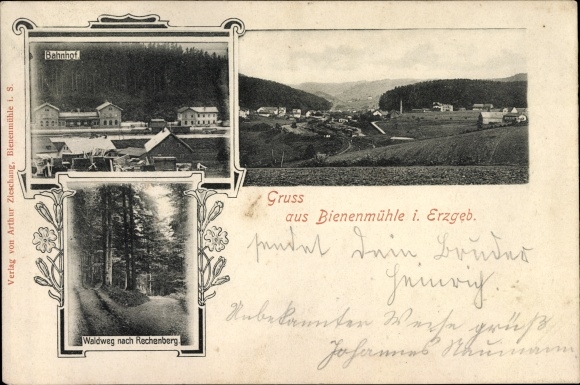 Bahnhof.
Verlag von Arthur Zieschang, Bienenmühle i. S.
Gruss
aus Bienenmühle i. Erzgeb.
sendet Dein Bruder
Heinrich.
Unbekannter Weise grüßt
Johannes Naumann
Waldweg nach Rechenberg.